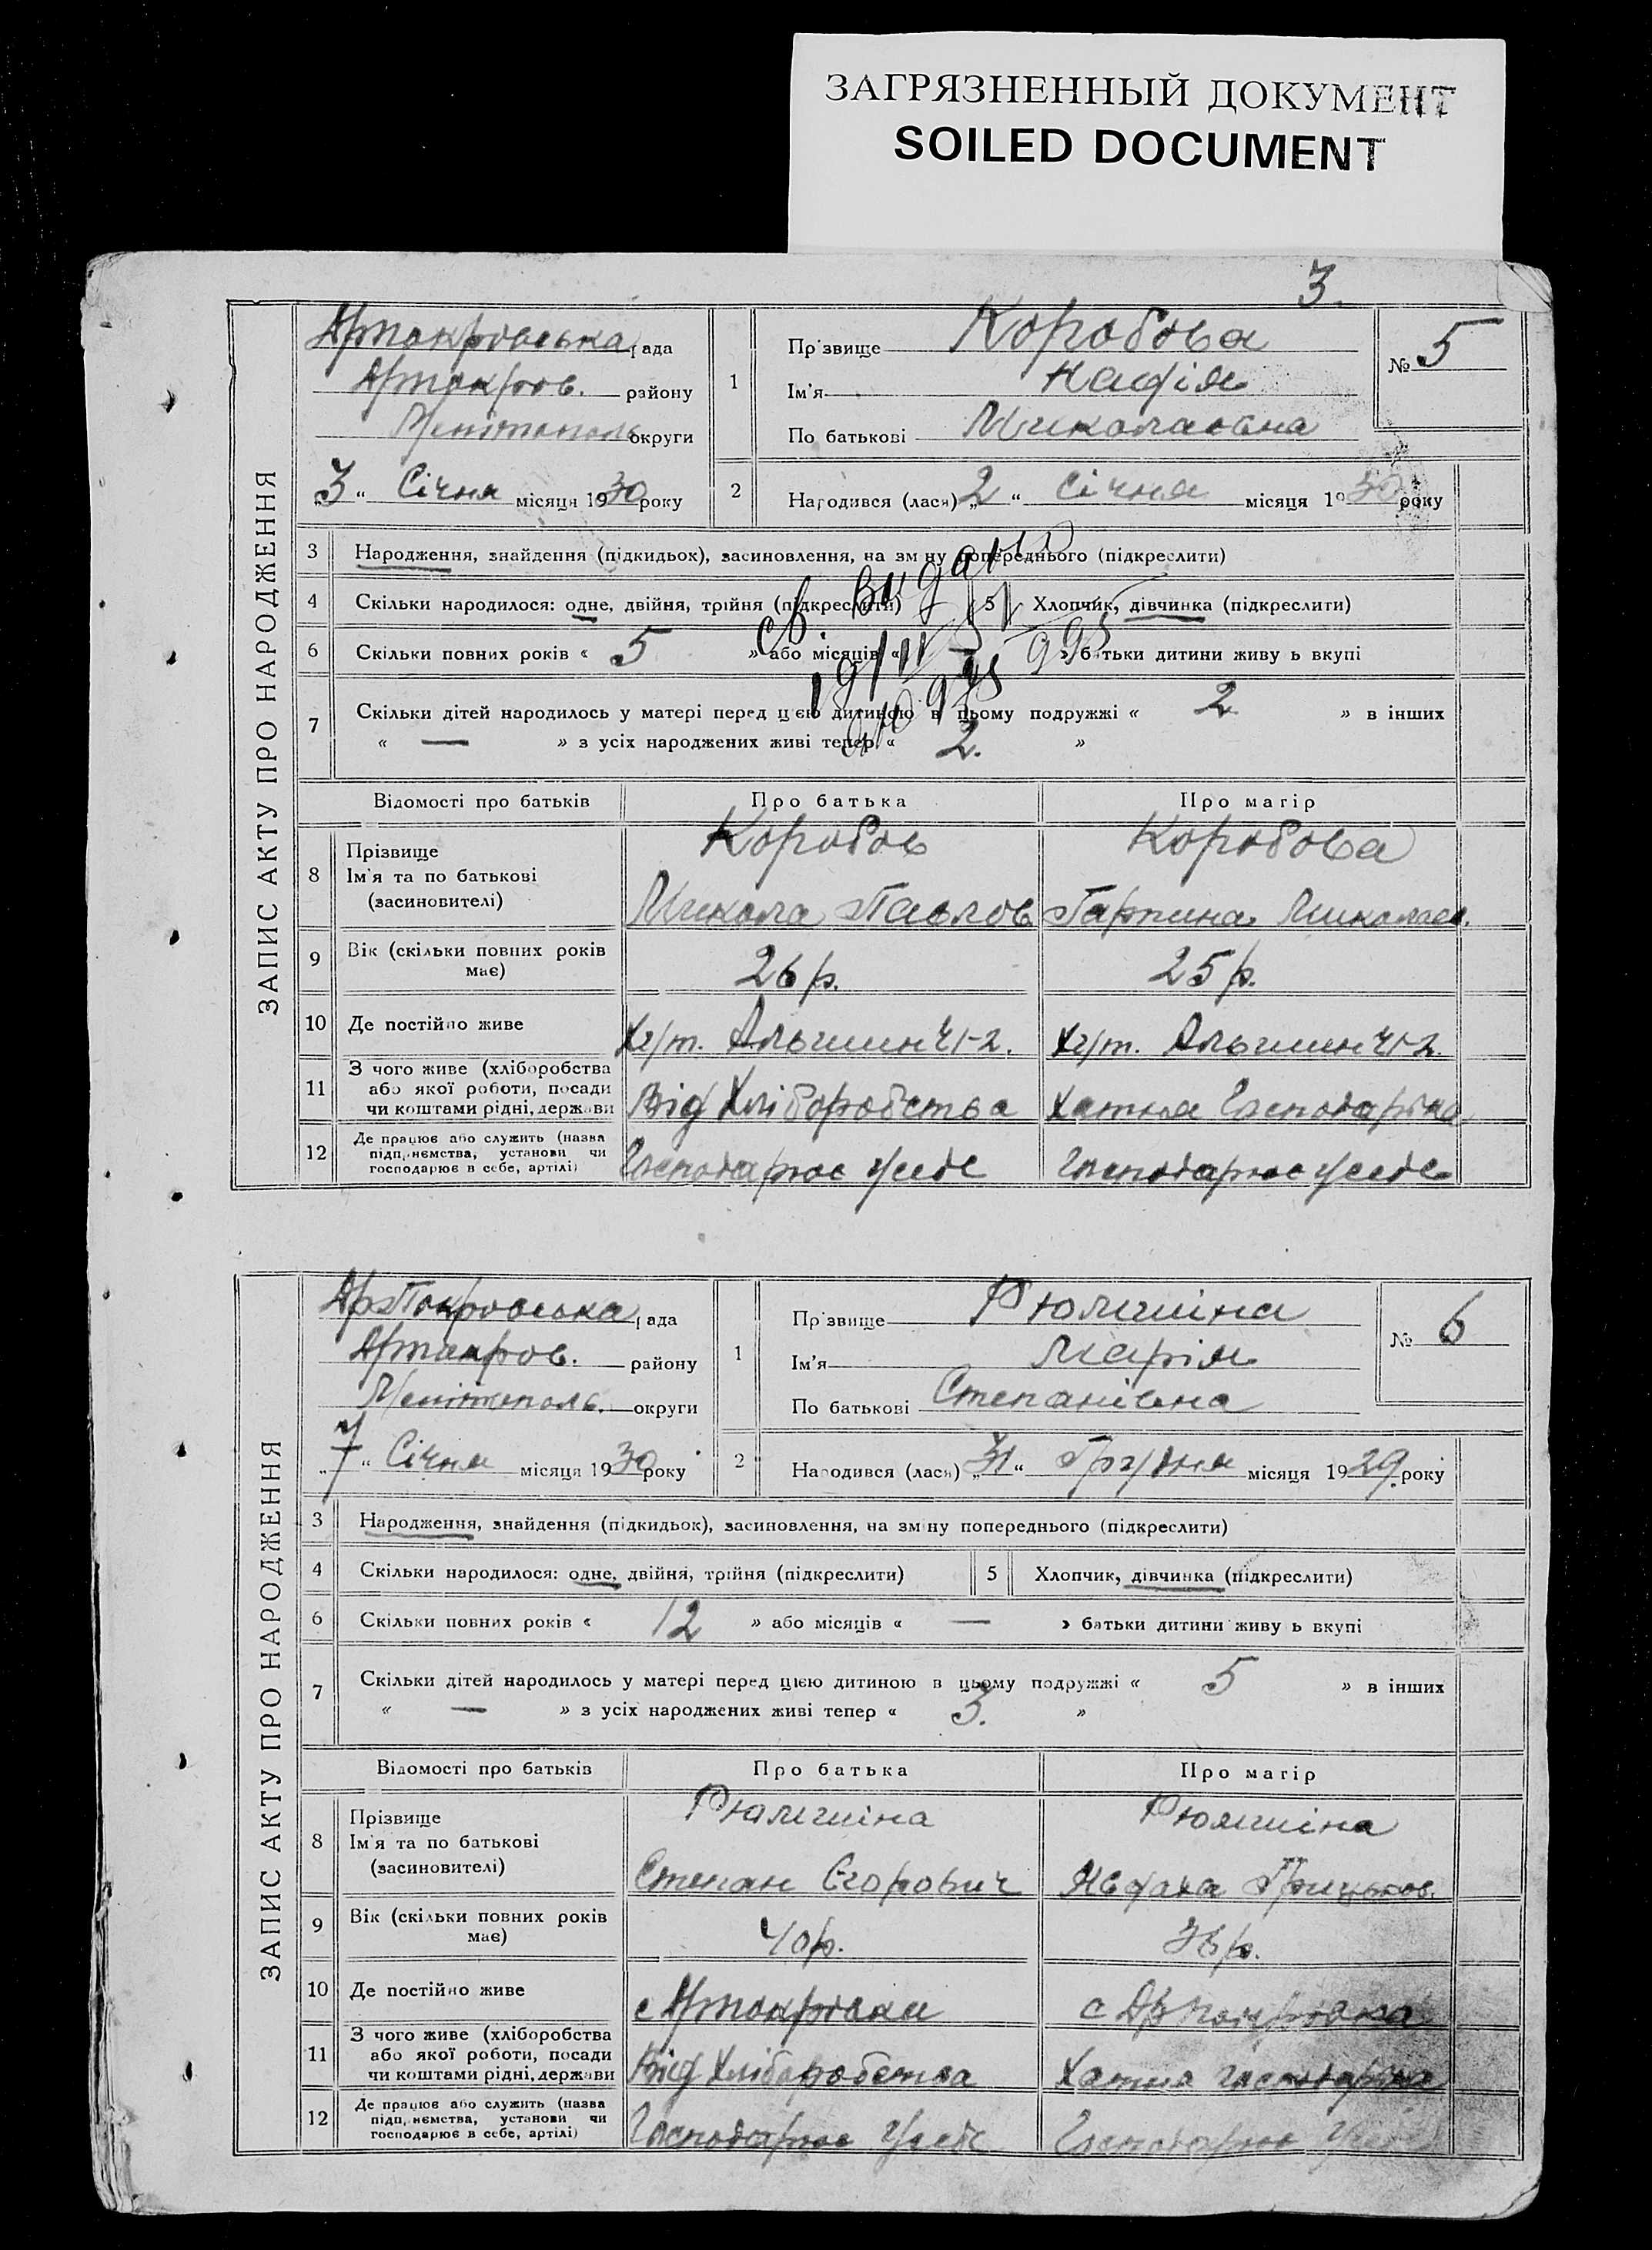 ЗАГРЯЗНЕННЫЙ ДОКУМЕНТ
SOILED DOCUMENT
3.
ЗАПИС АКТУ ПРО НАРОДЖЕННЯ
Артокровська рада
Артокров. району
Мелітополь округи
„3“ Січня місяця 1930 року
1 Прізвище Коробова
Ім'я Надія
По батькові Миколаевна
№ 5
2 Народився (лася) „2“ Січня місяця 1930 року
3 Народження, знайдення (підкидьок), засиновлення, на зміну попереднього (підкреслити)
4 Скільки народилося: одне, двійня, трійня (підкреслити) 5 Хлопчик, дівчинка (підкреслити)
6 Скільки повних років « 5 » або місяців « » батьки дитини живуть вкупі
7 Скільки дітей народилось у матері перед цією дитиною в цьому подружжі « 2 » в інших
« — » з усіх народжених живі тепер « 2. »
Відомості про батьків Про батька Про матір
8 Прізвище Коробов Коробова
Ім'я та по батькові
(засиновителі) Микола Павлов Гарпина Миколаев.
9 Вік (скільки повних років має) 26 р. 25 р.
10 Де постійно живе Хут. №1-2. Хут. №1-2
11 З чого живе (хліборобства
або якої роботи, посади
чи коштами рідні, держави Від Хліборобства Хатня Господарка
12 Де працює або служить (назва
підприємства, установи чи
господарює в себе, артілі) Господарює у себе Господарює у себе
ЗАПИС АКТУ ПРО НАРОДЖЕННЯ
Арпокровська рада
Артокров. району
Мелітополь. округи
„7“ Січня місяця 1930 року
1 Прізвище Рюмшіна
Ім'я Марія
По батькові Степанівна
№ 6
2 Народився (лася) „31“ Грудня місяця 1929. року
3 Народження, знайдення (підкидьок), засиновлення, на зміну попереднього (підкреслити)
4 Скільки народилося: одне, двійня, трійня (підкреслити) 5 Хлопчик, дівчинка (підкреслити)
6 Скільки повних років « 12 » або місяців « — » батьки дитини живуть вкупі
7 Скільки дітей народилось у матері перед цією дитиною в цьому подружжі « 5 » в інших
« — » з усіх народжених живі тепер « 3. »
Відомості про батьків Про батька Про матір
8 Прізвище Рюмшіна Рюмшіна
Ім'я та по батькові
(засиновителі) Степан Єгорович Явдоха Грицьков.
9 Вік (скільки повних років має) 40 р. 36 р.
10 Де постійно живе с Артокровка с Арпокровка
11 З чого живе (хліборобства
або якої роботи, посади
чи коштами рідні, держави Від Хліборобства Хатня господарка
12 Де працює або служить (назва
підприємства, установи чи
господарює в себе, артілі) Господарює у себе Господарює у себе